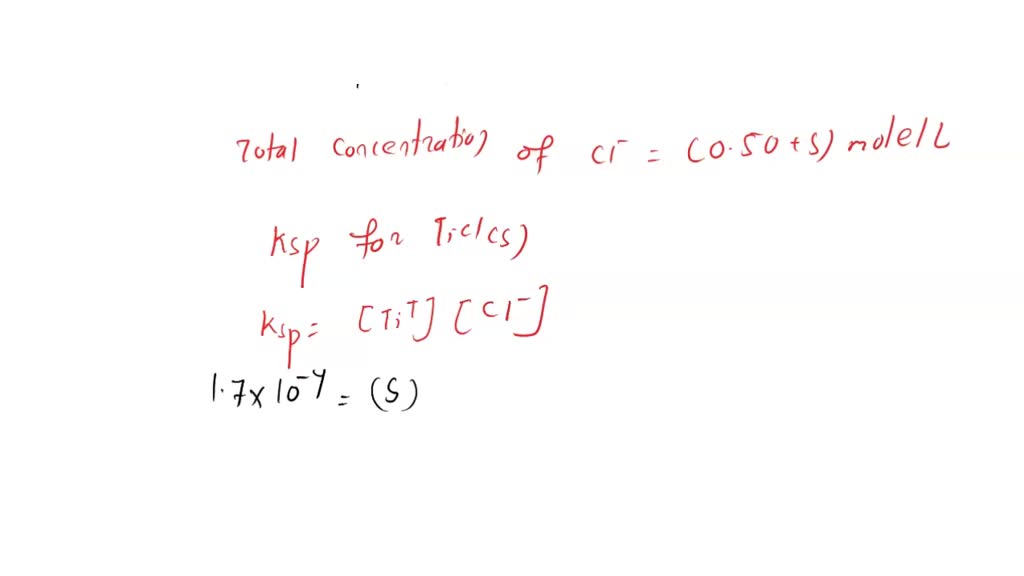 Total concentration of Cl⁻ = (0.50 + S) mole/L
Ksp for Ticl(s)
Ksp = [Ti⁺] [Cl⁻]
1.7 × 10⁻⁴ = (S)